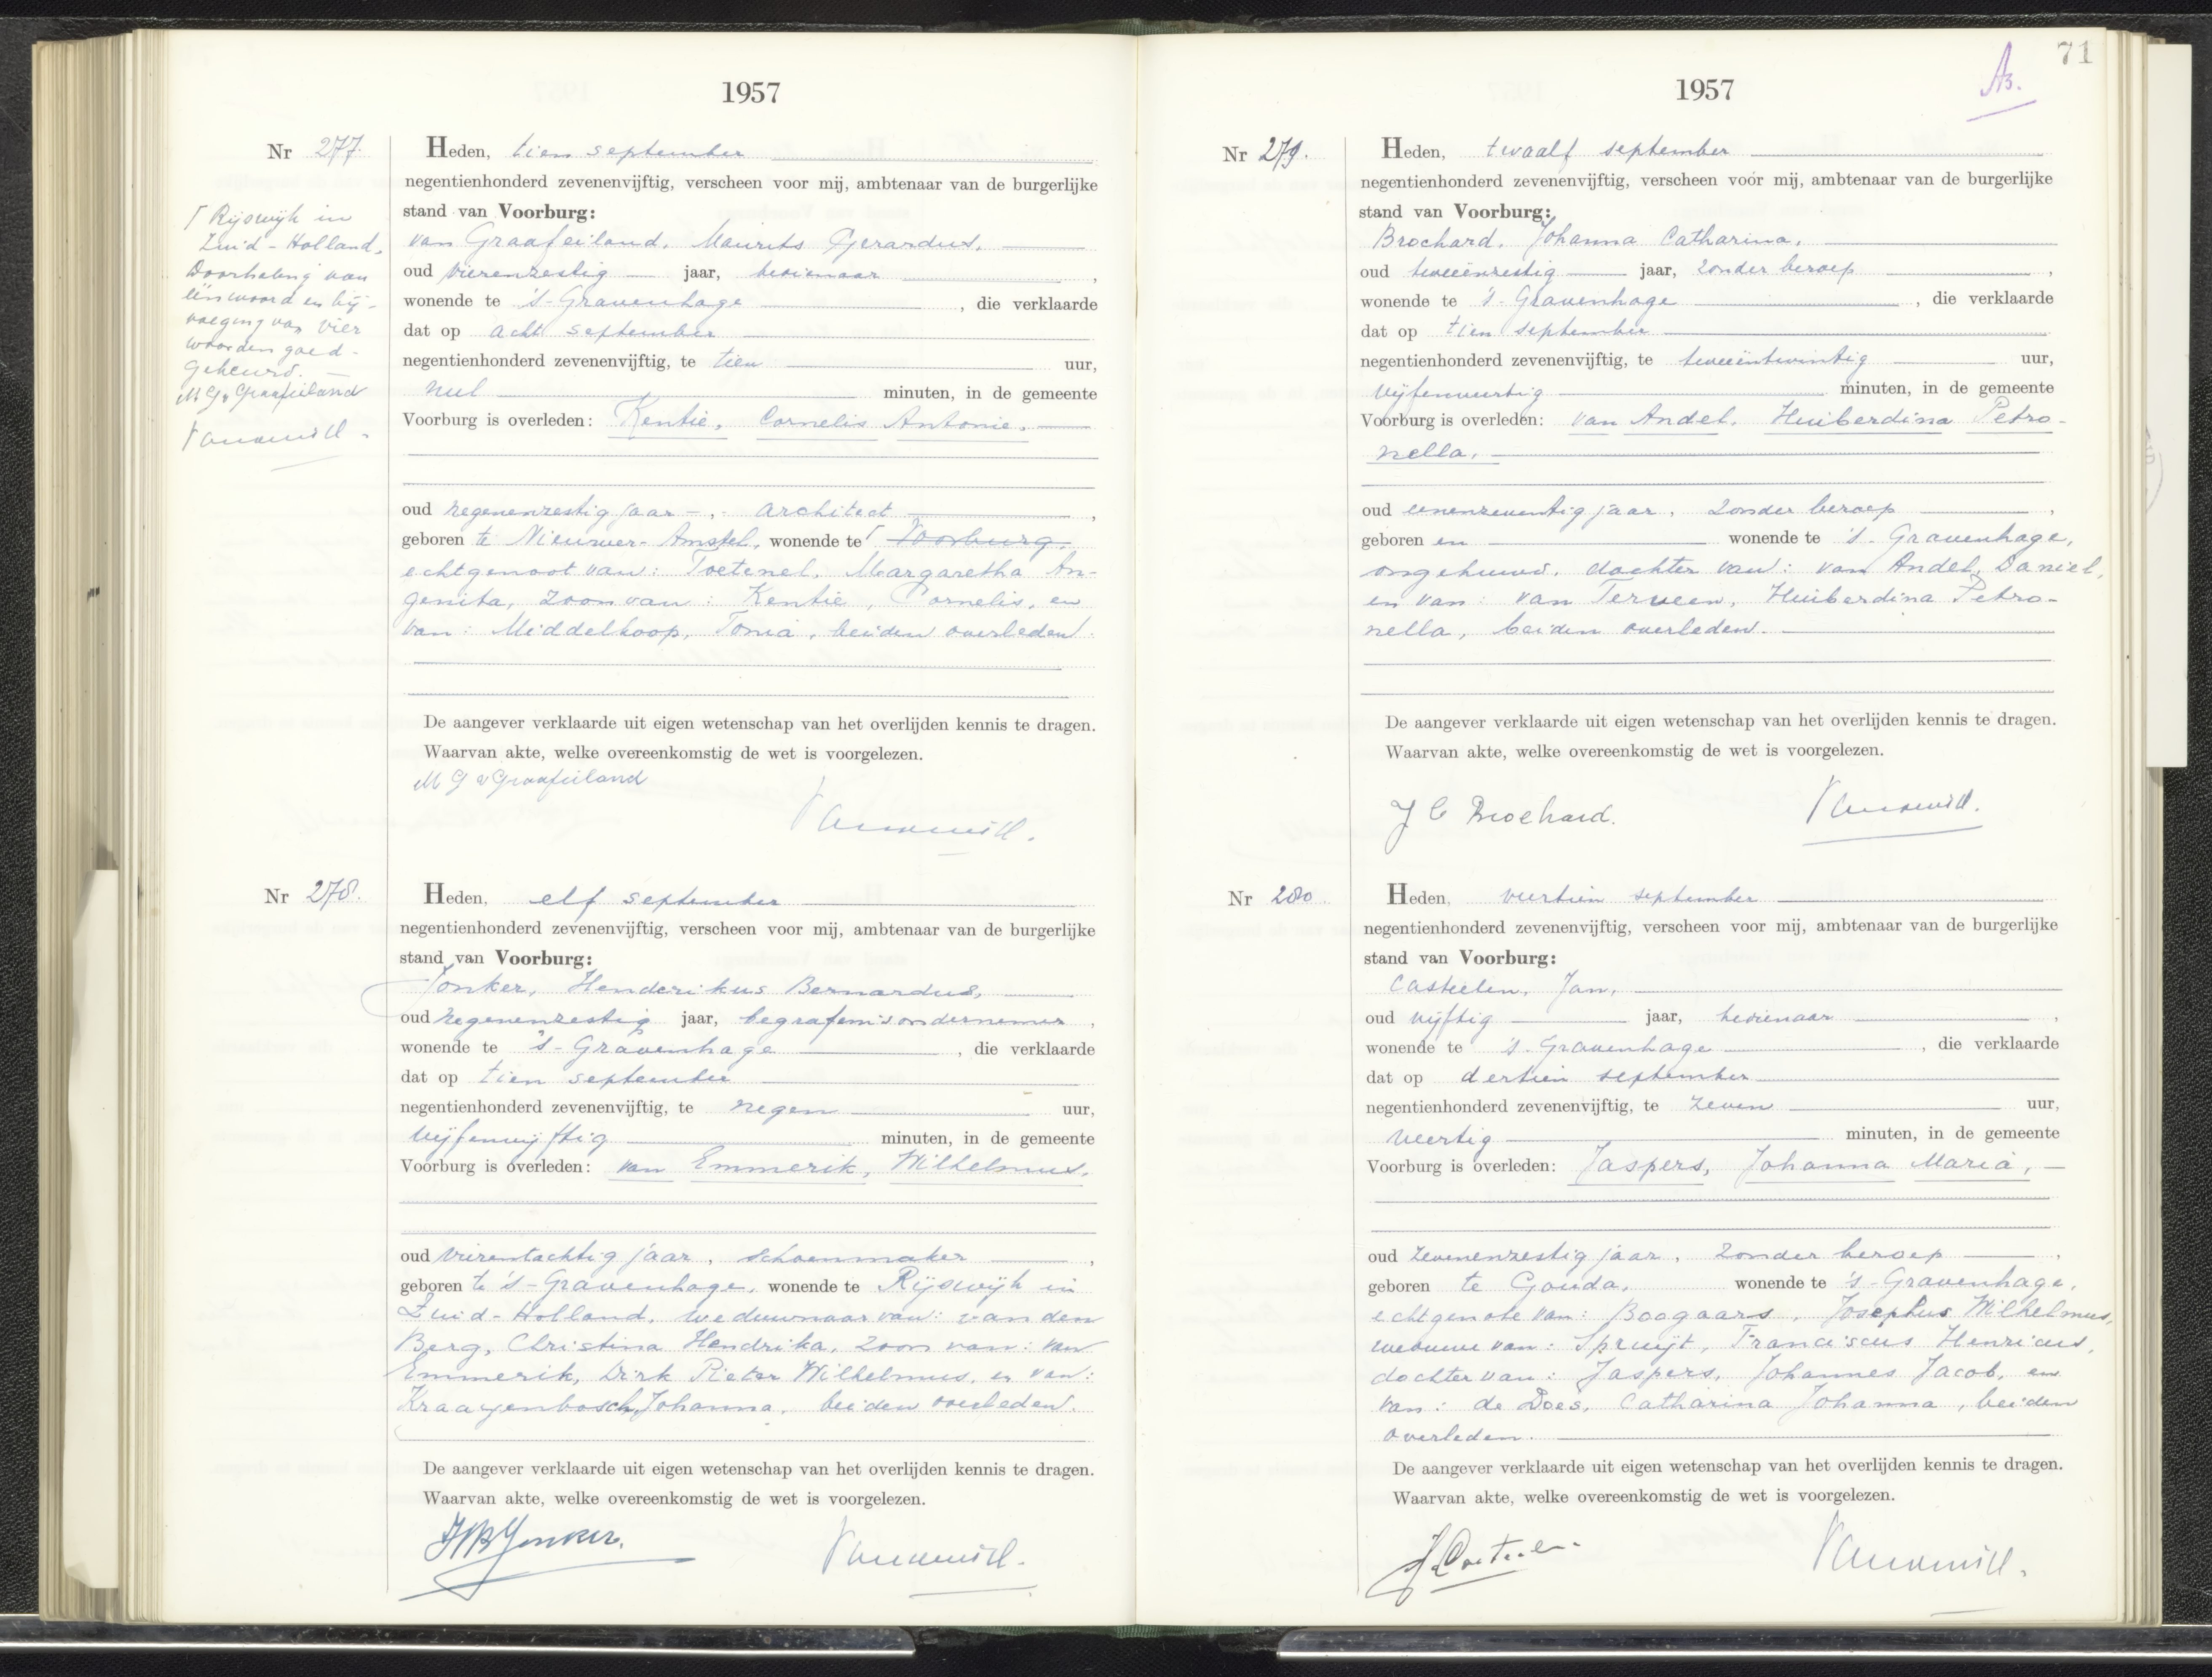 1957
Nr 277.
Heden, tien september
negentienhonderd zevenenvijftig, verscheen voor mij, ambtenaar van de burgerlijke
stand van Voorburg:
van Graafeiland, Maurits Gerardus,
oud vierenzestig jaar, bedienaar ,
wonende te 's-Gravenhage , die verklaarde
dat op acht september
negentienhonderd zevenenvijftig, te tien uur,
nul minuten, in de gemeente
Voorburg is overleden: Kentie, Cornelis Antonie,
oud negenenzestig jaar -, architect ,
geboren te Nieuwer-Amstel, wonende te ⌈ Voorburg,
echtgenoot van: Toetenel, Margaretha An-
genita, zoon van: Kentie, Cornelis, en
van: Middelkoop, Tonia, beiden overleden.
De aangever verklaarde uit eigen wetenschap van het overlijden kennis te dragen.
Waarvan akte, welke overeenkomstig de wet is voorgelezen.
M G v Graafeiland
⌈ Rijswijk in
Zuid-Holland,
Doorhaling van
één woord en bij-
voeging van vier
woorden goed-
gekeurd.
M G v Graafeiland
Nr 278.
Heden, elf september
negentienhonderd zevenenvijftig, verscheen voor mij, ambtenaar van de burgerlijke
stand van Voorburg:
Jonker, Henderikus Bernardus,
oud negenenzestig jaar, begrafenisondernemer ,
wonende te 's-Gravenhage , die verklaarde
dat op tien september
negentienhonderd zevenenvijftig, te negen uur,
vijfenvijftig minuten, in de gemeente
Voorburg is overleden: van Emmerik, Wilhelmus,
oud vierentachtig jaar, schoenmaker ,
geboren te 's-Gravenhage, wonende te Rijswijk in
Zuid-Holland, weduwnaar van: van den
Berg, Christina Hendrika, zoon van: van
Emmerik, Dirk Pieter Wilhelmus, en van:
Kraayenbosch, Johanna, beiden overleden.
De aangever verklaarde uit eigen wetenschap van het overlijden kennis te dragen.
Waarvan akte, welke overeenkomstig de wet is voorgelezen.
HB Jonker.
71
1957
Nr 279.
Heden, twaalf september
negentienhonderd zevenenvijftig, verscheen voor mij, ambtenaar van de burgerlijke
stand van Voorburg:
Brochard, Johanna Catharina,
oud tweeënzestig jaar, zonder beroep ,
wonende te 's-Gravenhage , die verklaarde
dat op tien september
negentienhonderd zevenenvijftig, te tweeëntwintig uur,
vijfenveertig minuten, in de gemeente
Voorburg is overleden: van Andel, Huiberdina Petro-
nella,
oud eenenzeventig jaar, zonder beroep ,
geboren en wonende te 's-Gravenhage,
ongehuwd, dochter van: van Andel, Daniel,
en van: van Terveen, Huiberdina Petro-
nella, beiden overleden.
De aangever verklaarde uit eigen wetenschap van het overlijden kennis te dragen.
Waarvan akte, welke overeenkomstig de wet is voorgelezen.
J C Brochard.
Nr 280
Heden, veertien september
negentienhonderd zevenenvijftig, verscheen voor mij, ambtenaar van de burgerlijke
stand van Voorburg:
Casteelen, Jan,
oud vijftig jaar, bedienaar ,
wonende te 's-Gravenhage , die verklaarde
dat op dertien september
negentienhonderd zevenenvijftig, te zeven uur,
veertig minuten, in de gemeente
Voorburg is overleden: Jaspers, Johanna Maria,
oud zevenenzestig jaar, zonder beroep ,
geboren te Gouda, wonende te 's-Gravenhage,
echtgenote van: Boogaars, Josephus Wilhelmus,
weduwe van: Spruijt, Franciscus Henricus,
dochter van: Jaspers, Johannes Jacob, en
van: de Does, Catharina Johanna, beiden
overleden.
De aangever verklaarde uit eigen wetenschap van het overlijden kennis te dragen.
Waarvan akte, welke overeenkomstig de wet is voorgelezen.